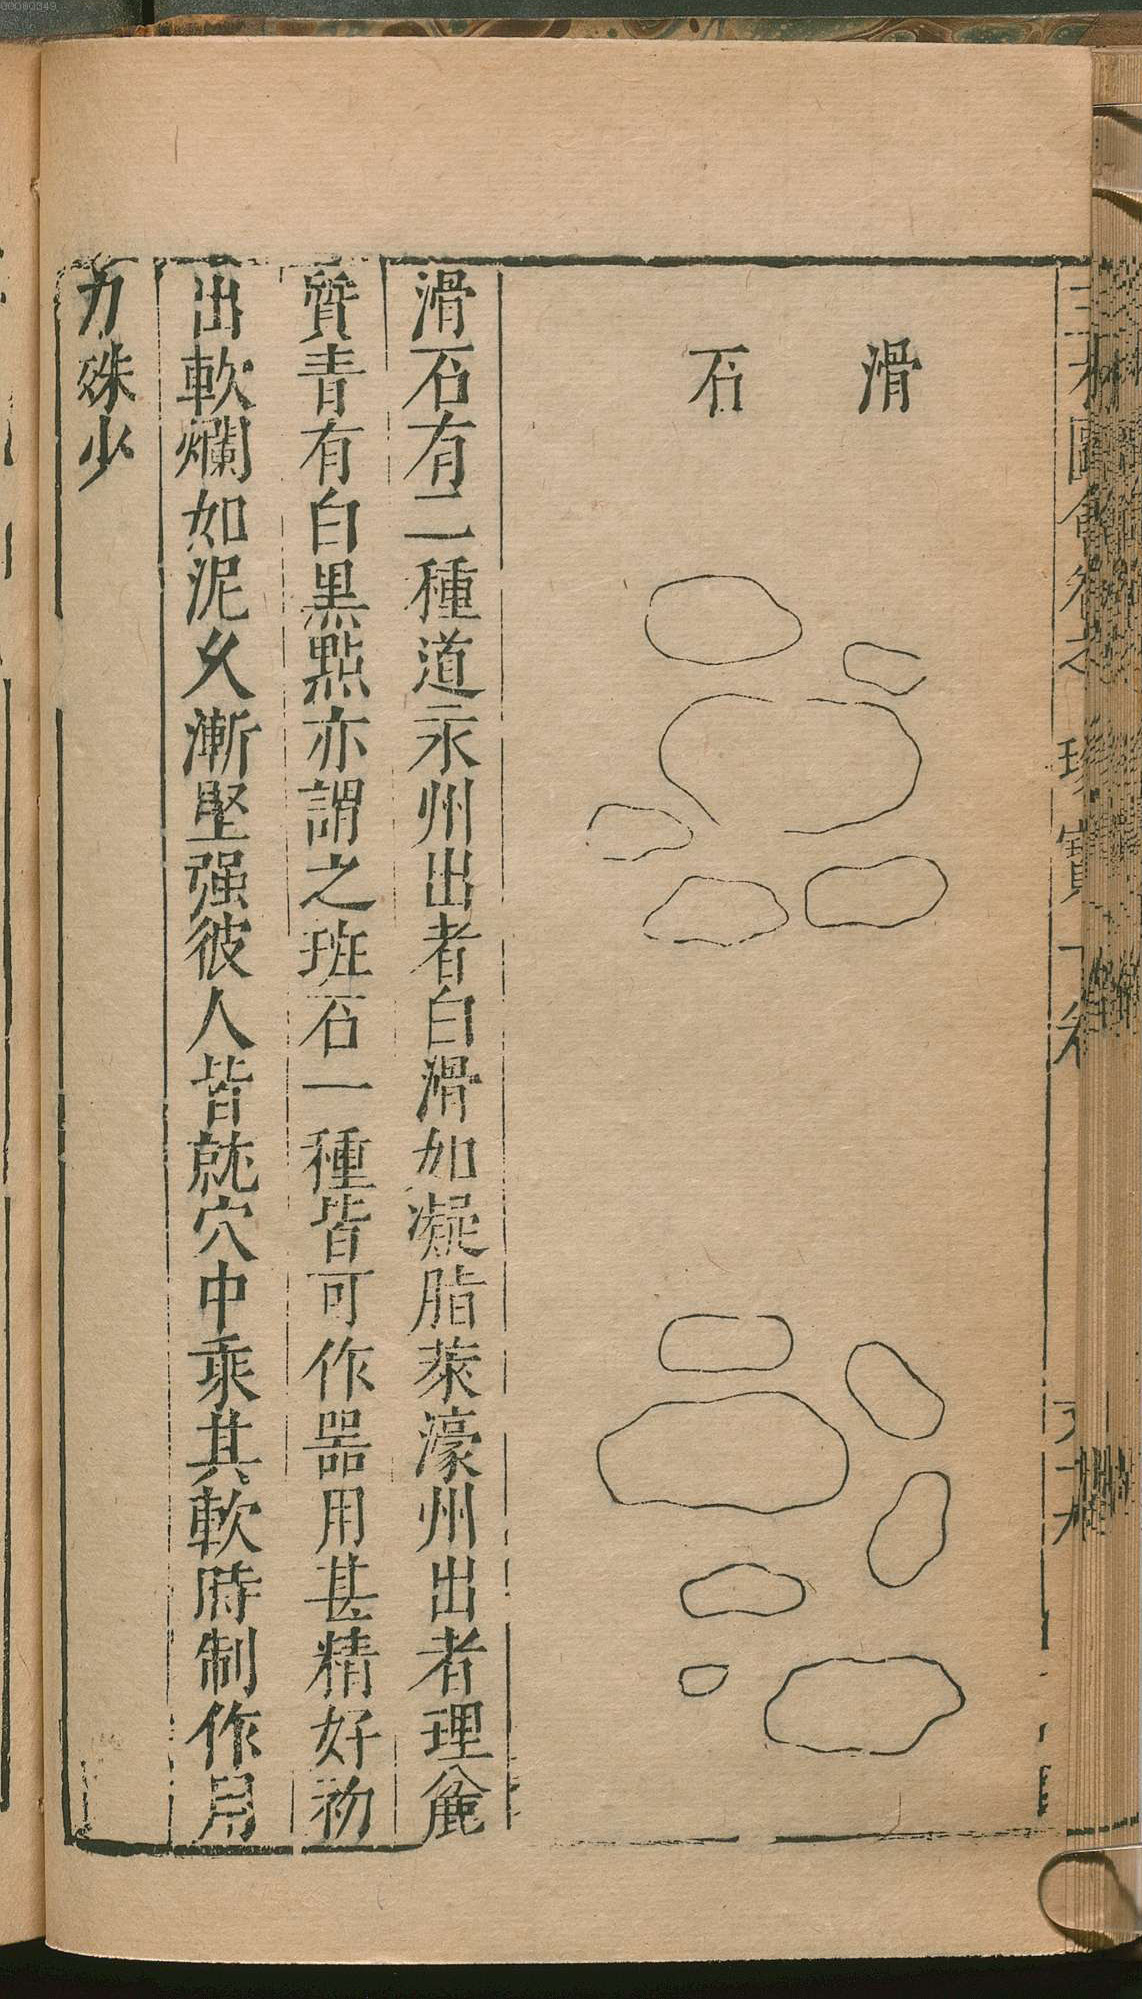 滑石
滑石有二種道永州出者白滑如凝脂萊濠州出者理麄
質青有白黒點亦謂之班石一種皆可作器用甚精好初
出軟爛如泥乆漸堅强彼人皆就穴中乘其軟時制作用
力殊少
00000049